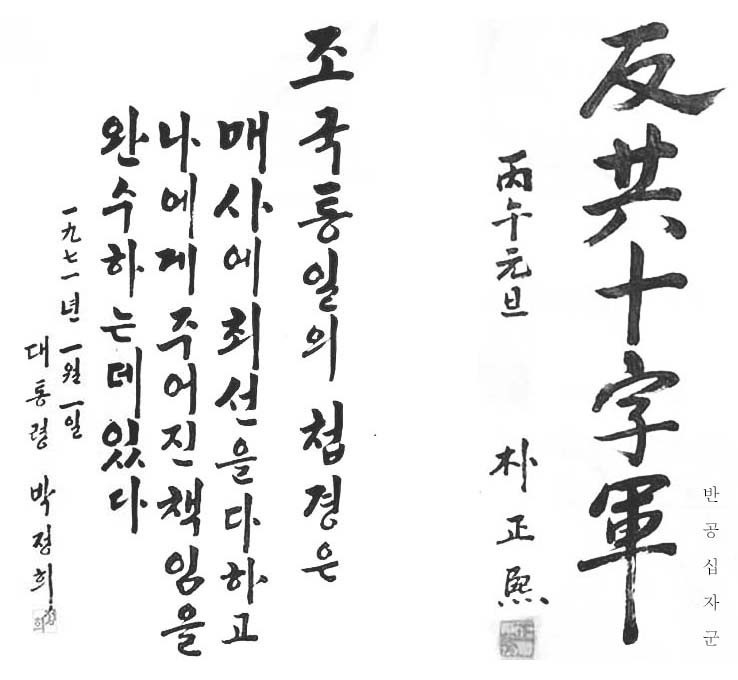 反共十字軍
반공십자군
丙午元旦
朴正熙
조국통일의 첩경은
매사에 최선을 다하고
나에게 주어진 책임을
완수하는데 있다
一九七一년 一월 一일
대통령 박정희